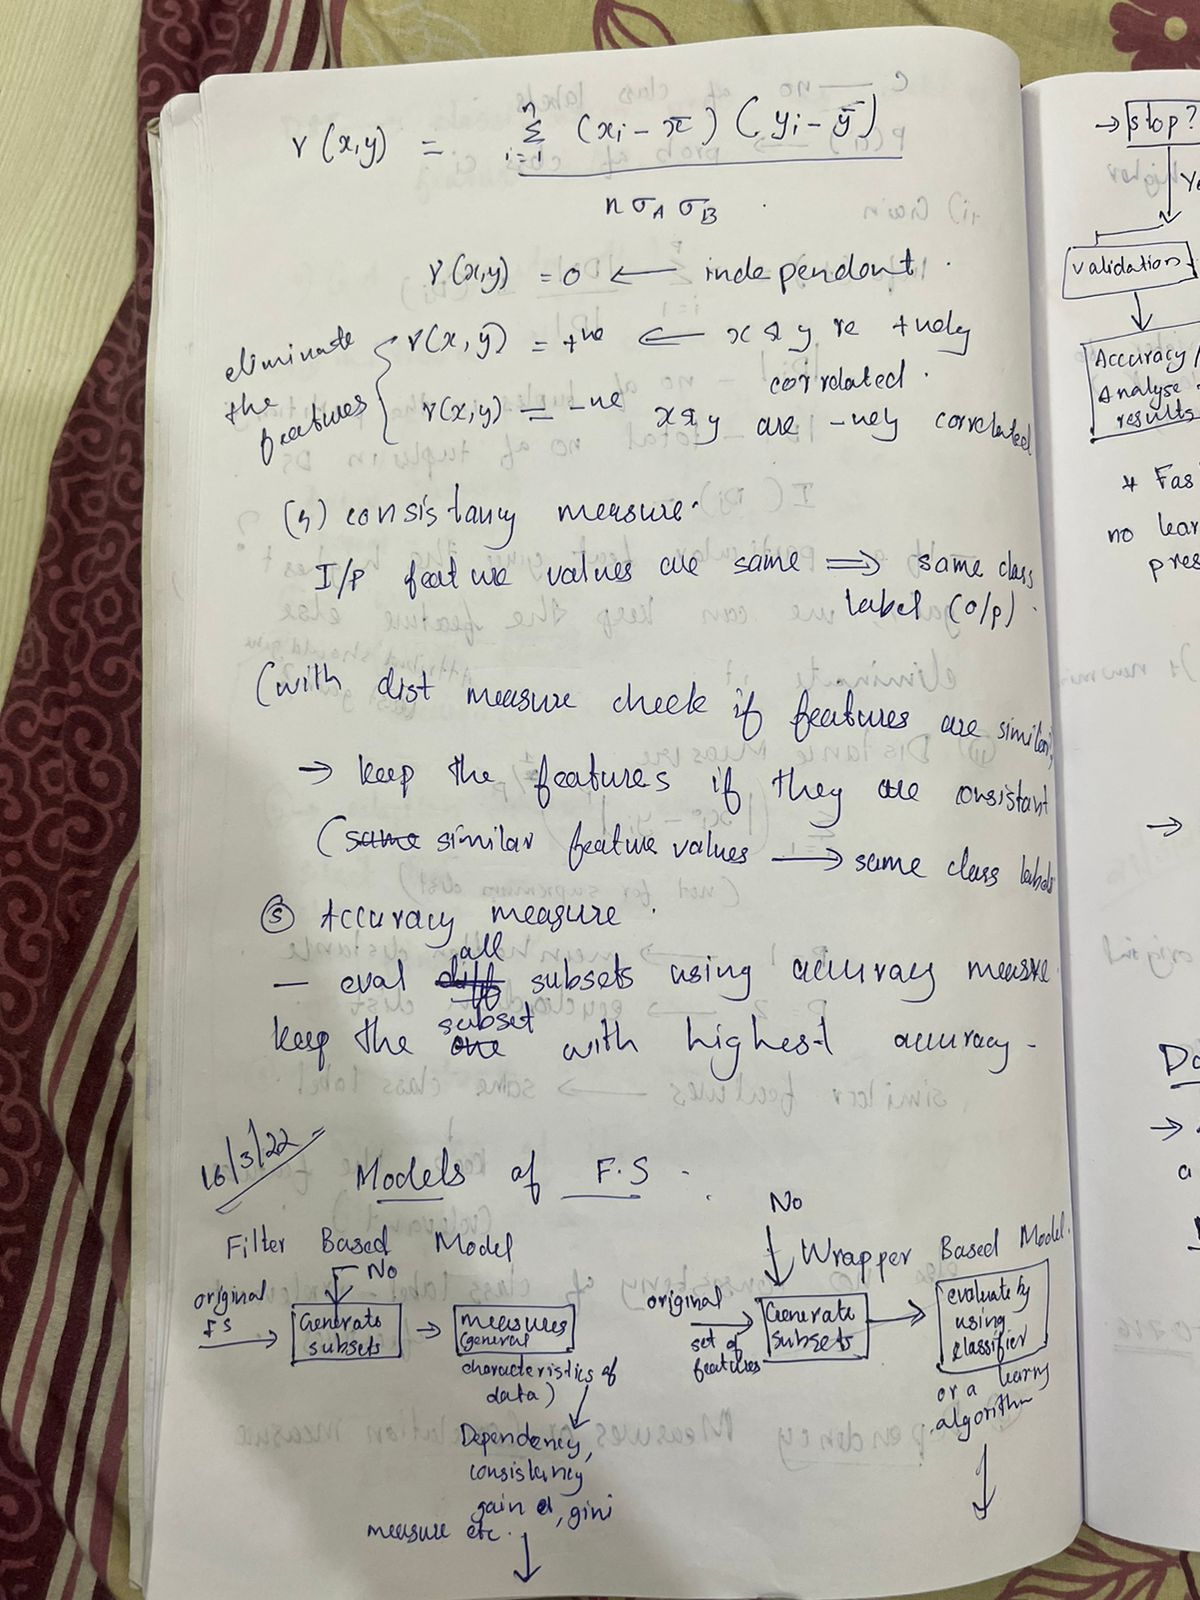 r(x,y) = n Σ i=1 (xi - x̄) (yi - ȳ)
n σA σB
r(x,y) = 0 ← independent.
eliminate the features { r(x,y) = +ve ← x & y re +vely correlated.
r(x,y) = -ve x & y are -vely correlated
(4) consistancy measure.
I/p feature values are same ⟹ same class
label (o/p).
(with dist measure check if features are similar,
→ keep the features if they are consistant
(same similar feature values → same class labels
⑤ Accuracy measure.
all
— eval diff subsets using accuracy measure
subset
keep the one with highest accuracy -
16/3/22
Models of F.S
Filter Based Model
No
original
FS → Generate subsets → measures
(general
characteristics of
data)
Dependency,
consistancy
gain d, gini
measure etc.
No
Wrapper Based Model.
original
set of
features
Generate
subsets
evaluate by
using
classifier
or a learng
algorithm
→ stop?
validation
Accuracy /
Analyse
results